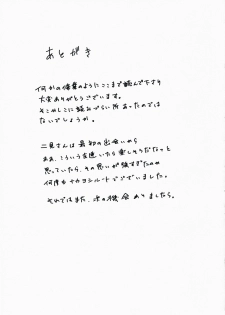 あとがき
何かの偉業のようにここまで読んで下さり
大変ありがとうございます。
そこかしこに読みづらい所あったのでは
ないでしょうか。
二見さんは最初の出会いから
ああ、こういう友達いたら楽しそうだなっと
思っていたら、その思いが強すぎたのか
何度もナカヨシルートでございました。
それではまた、次の機会ありましたら。